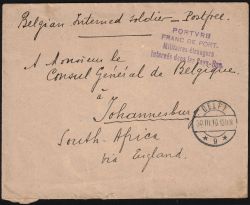 Belgian Interned soldier – Postfree.
PORTVRIJ
FRANC DE PORT.
Militaires étrangers
internés dans les Pays-Bas.
A Monsieur le
Consul Général de Belgique
à
Johannesburg
South Africa
via England.
DELFT